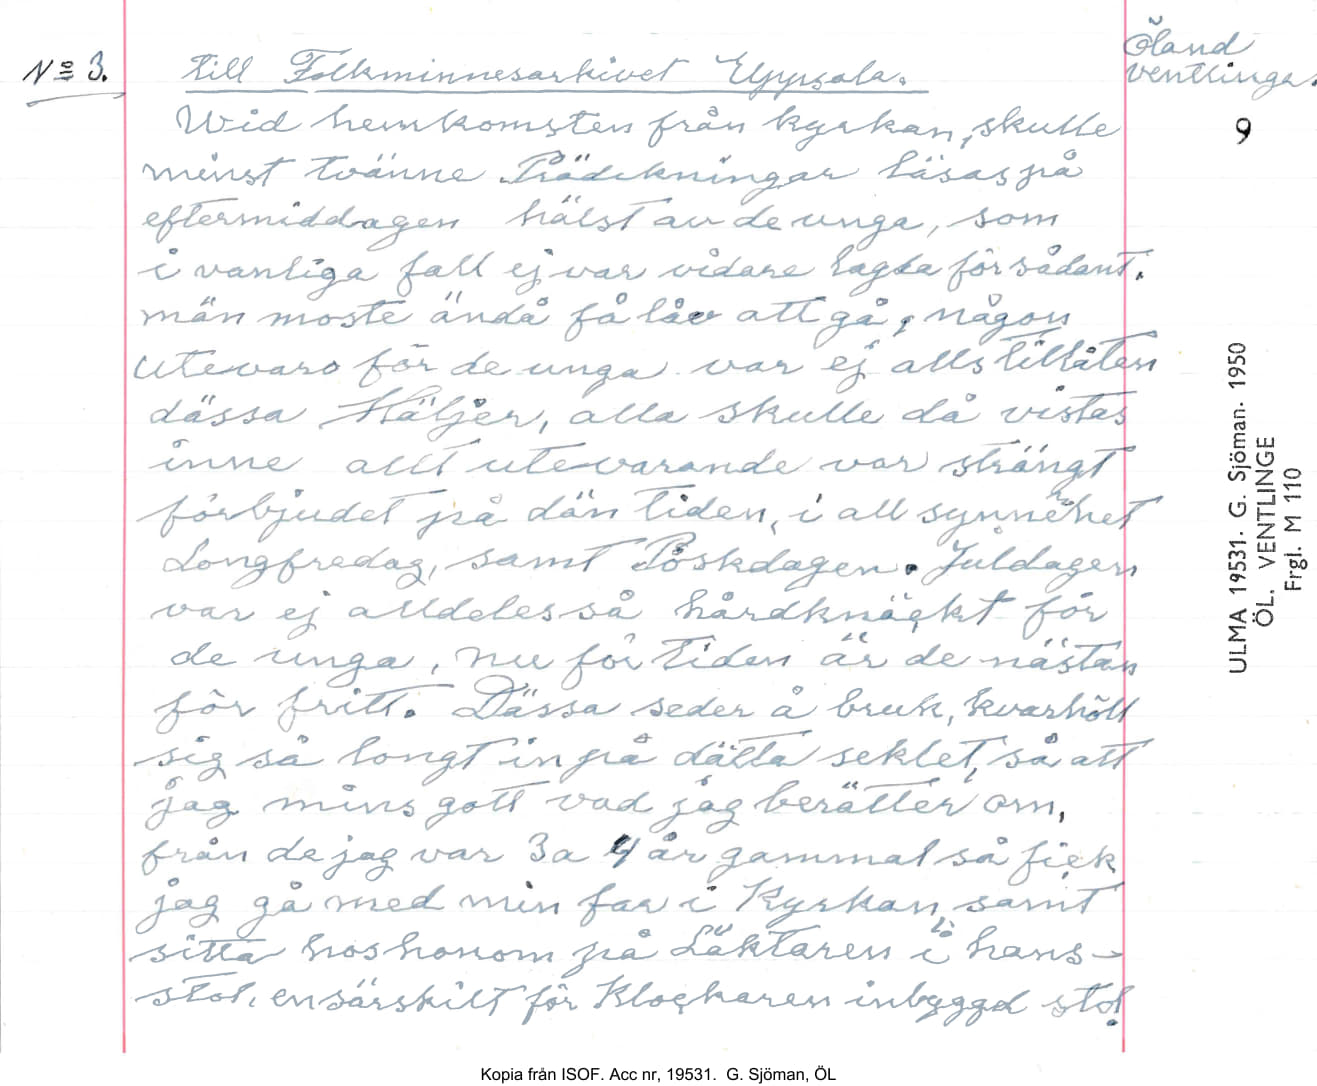 No 3.
till Folkminnesarkivet Uppsala.
Öland
Ventlinge.
9
Wid hemkomsten från kyrkan, skulle
minst tvänne Prädikningar läsas på
eftermiddagen hälst av de unga, som
i vanliga fall ej var vidare lagda för sådant.
män moste ändå få låv att gå, någon
utevaro för de unga var ej alls tillåten
dässa Häljer, alla skulle då vistas
inne allt utevarande var strängt
förbjudet på dän tiden, i all synnerhet
Longfredag, samt Påskdagen. Juldagen
var ej alldeles så hårdknäckt för
de unga, nu för tiden är de nästan
för fritt. Dässa seder å bruk, kvarhöll
sig så longt in på dätta seklet, så att
jag mins gott vad jag berätter om,
från de jag var 3 a 4 år gammal så fick
jag gå med min far i Kyrkan, samt
sitta hos honom på Läktaren i hans
stol, en särskilt för Klockaren inbyggd stol.
ULMA 19531. G. Sjöman. 1950
ÖL. VENTLINGE
Frgl. M 110
Kopia från ISOF. Acc nr, 19531. G. Sjöman, ÖL